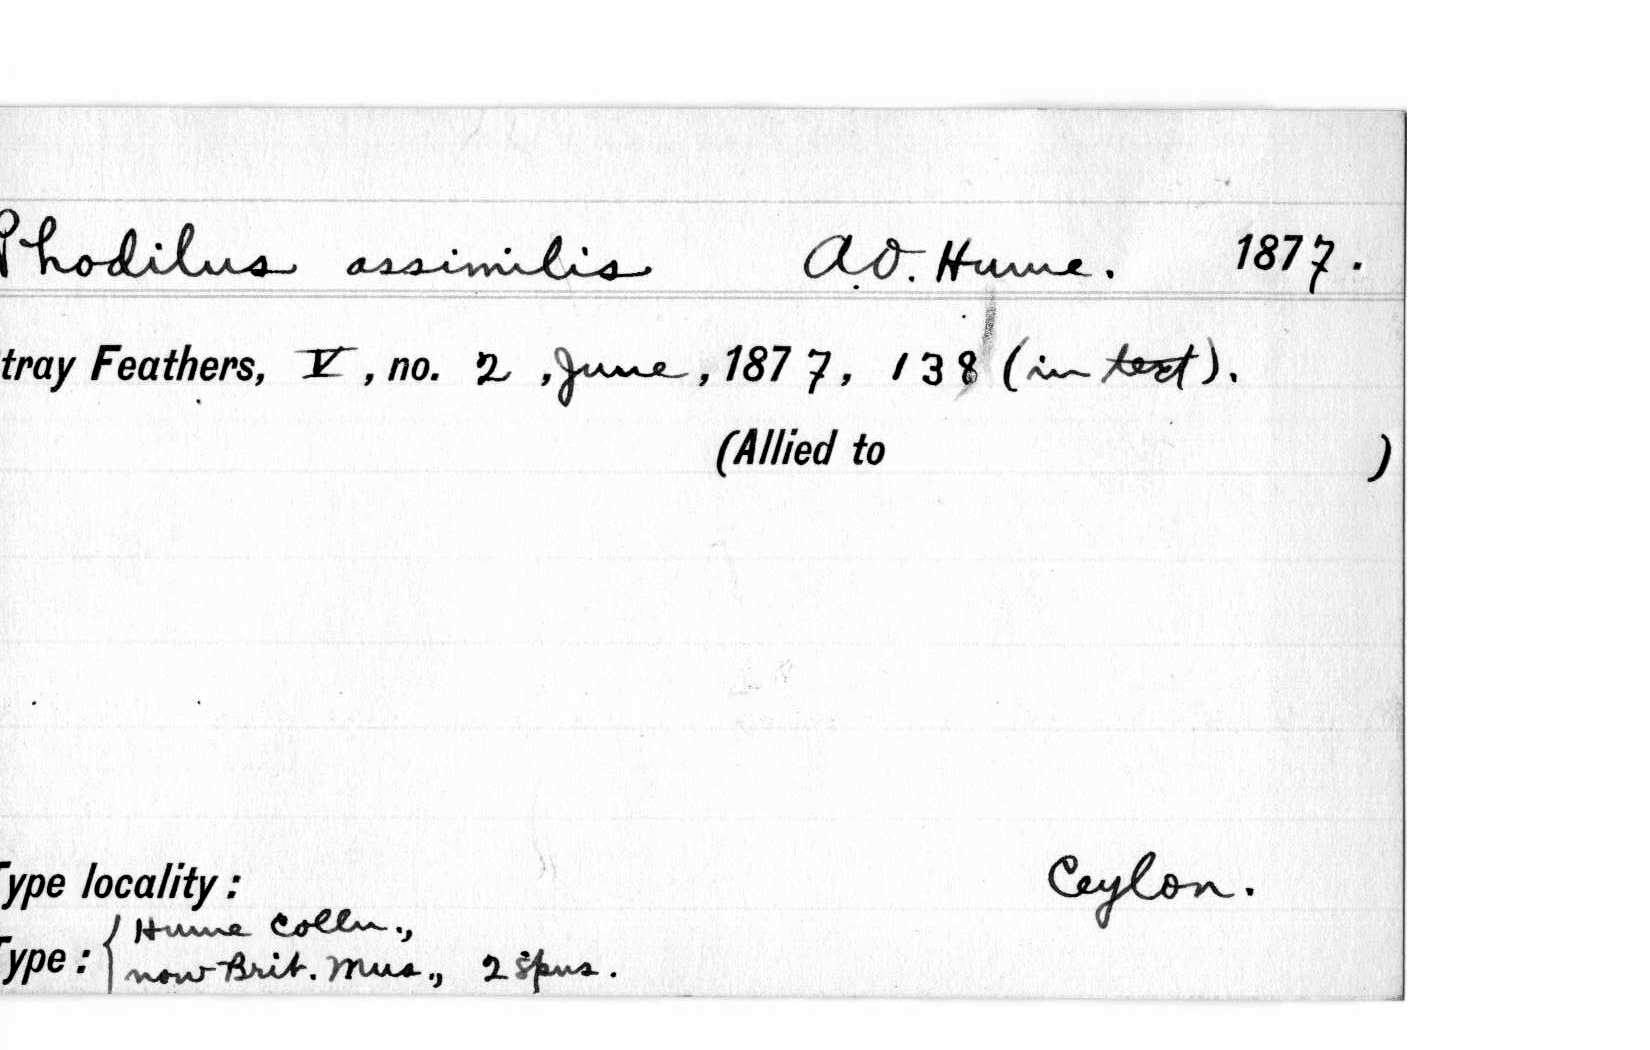 Phodilus assimilis A.O. Hume. 1877.
tray Feathers, V, no. 2, June, 1877, 138 (in text).
(Allied to )
Type locality: Ceylon.
Type: { Hume Colln.,
now Brit. Mus., 2 spns.